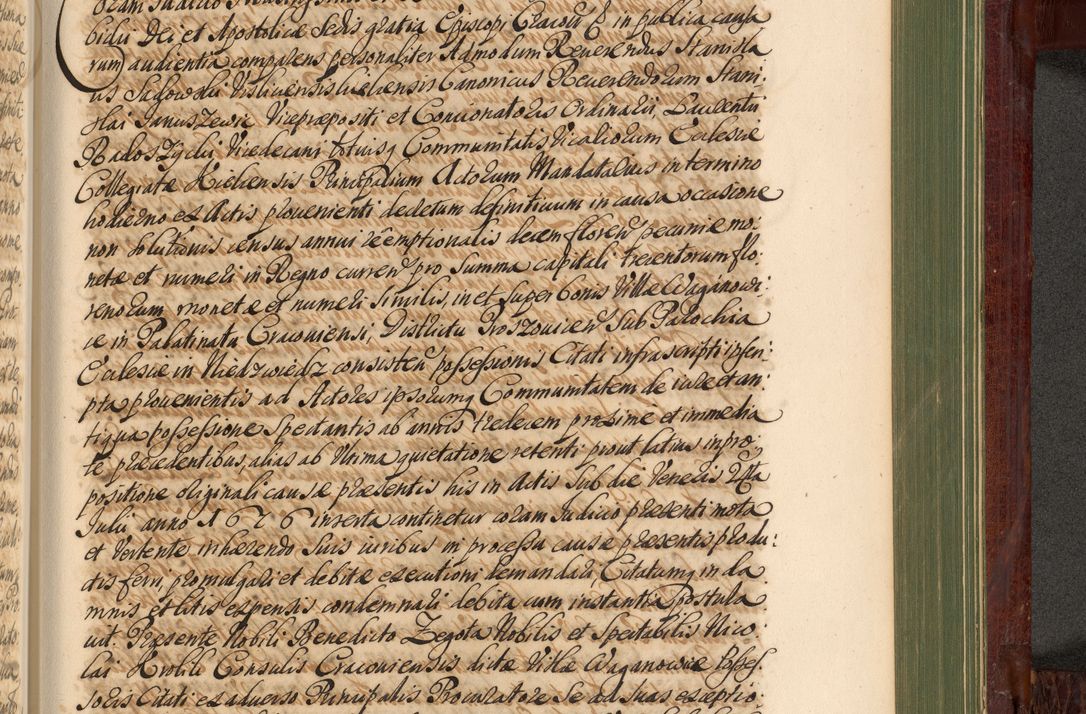 bidii Dei et Apostolicæ Sedis gratia Episcopi Cracov in publica causa
rum audientia comparens personaliter Admodum Reverendus Stanisla
us Sadowski Visliciensis Kielcensis Canonicus Reverendorum Stani
slai Januszewic Vicepræpositi et Concionatoris Ordinarii, Laurentii
Radoszycki, Vicedecani totiusq Communitatis Vicariorum Ecclesiæ
Collegiatæ Kielcensis Principalium Actorum Mandatarius in termino
hodierno ex Actis provenienti decretum definitivum in causa occasione
non solutionis census annui reemptionalis decem floren pecuniæ mo:
netæ et numeri in Regno curren pro Summa capitali trecentorum flo:
renorum monetæ et numeri similis, in et super bonis Villæ Waganowi:
ce in Palatinatu Cracoviensi, Districtu Proszovicen Sub Parochia
Ecclesiæ in Niedzwiedz consisten possessionis Citati infrascripti inscri:
pta provenientis ad Actores ipsorumq Communitatem de iure et an:
tiqua possessione spectantis ab annis tredecem proxime et immedia
te præcedentibus, alias ab Ultima quietatione retenti prout latius in pro:
positione originali causæ præsentis his in Actis sub die Veneris 24ta
Julii anno 1676 inserta continetur coram Judicio præsenti mota
et vertente inhærendo suis iuribus in processu causæ præsentis produ:
ctis ferri, promulgari et debitæ executioni demandari, Citatumq in da
mnis et litis expensis condemnari debita cum instantia postula
vit. Præsente Nobili Benedicto Zegota Nobilis et Spectabilis Nico
lai Krolik Consulis Cracoviensis dictæ Villæ Waganowice Posses
soris Citati ex adverso Principalis Procuratore Se ad suas exceptio: